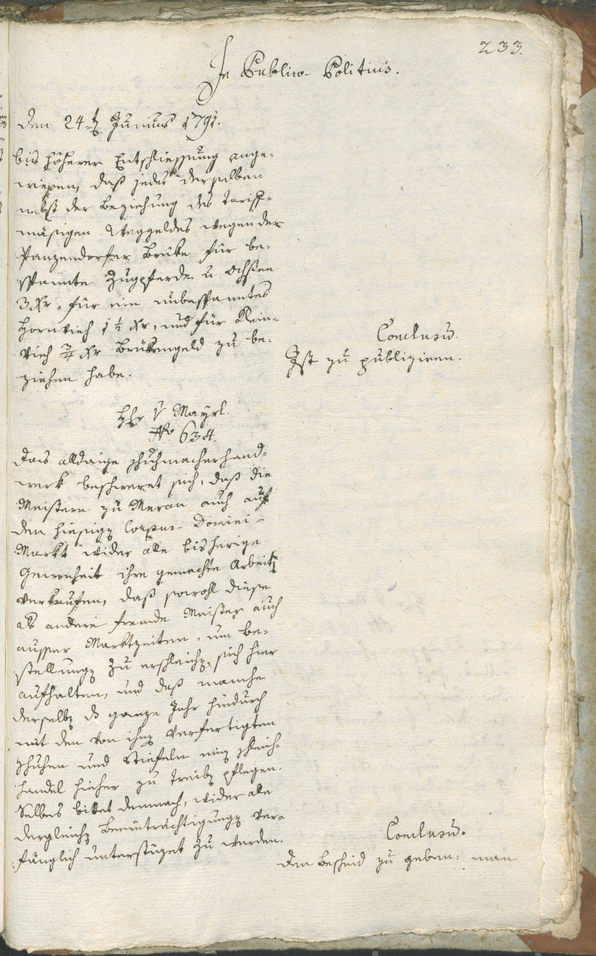 233.
In Publico Politicis.
den 24t Junius 1791.
bis höherer Entschliessung ange-
wiesen, daß jedes derselben
nebst der Beziehung des tariff-
mäsigen Weggeldes wegen der
Panzendorfer Brüke für be-
spannte Zugpferde u Ochsen
3 Kr. für ein unbespanntes
Hornvieh 1½ Kr, und für Klein-
vieh ¾ Kr Brükengeld zu be-
ziehen habe.
Conclusum.
Ist zu publiziren.
Hr v Mayrl.
No 634.
Das alldaige Schuhmacherhand-
werk beschweret sich, daß die
Meistern zu Meran auch auf
den hiesigen Corpus-Domini-
Markt wider alle bisherige
Gewonheit ihre gemachte Arbeit
verkaufen, daß sowohl diese
als andere fremde Meister auch
ausser Marktzeiten, um be-
stellungen zu erschleichen, sich hier
aufhalten, und daß manche
derselben das ganze Jahr hindurch
mit den von ihnen verfertigten
Schuhen und Stiefeln einen Schleich-
handel hieher zu treiben pflegen.
Selbes bittet demnach, wider alle
dergleichen Beeinträchtigungen ver-
fänglich unterstüzet zu werden.
Conclusum.
Den Bescheid zu geben: man